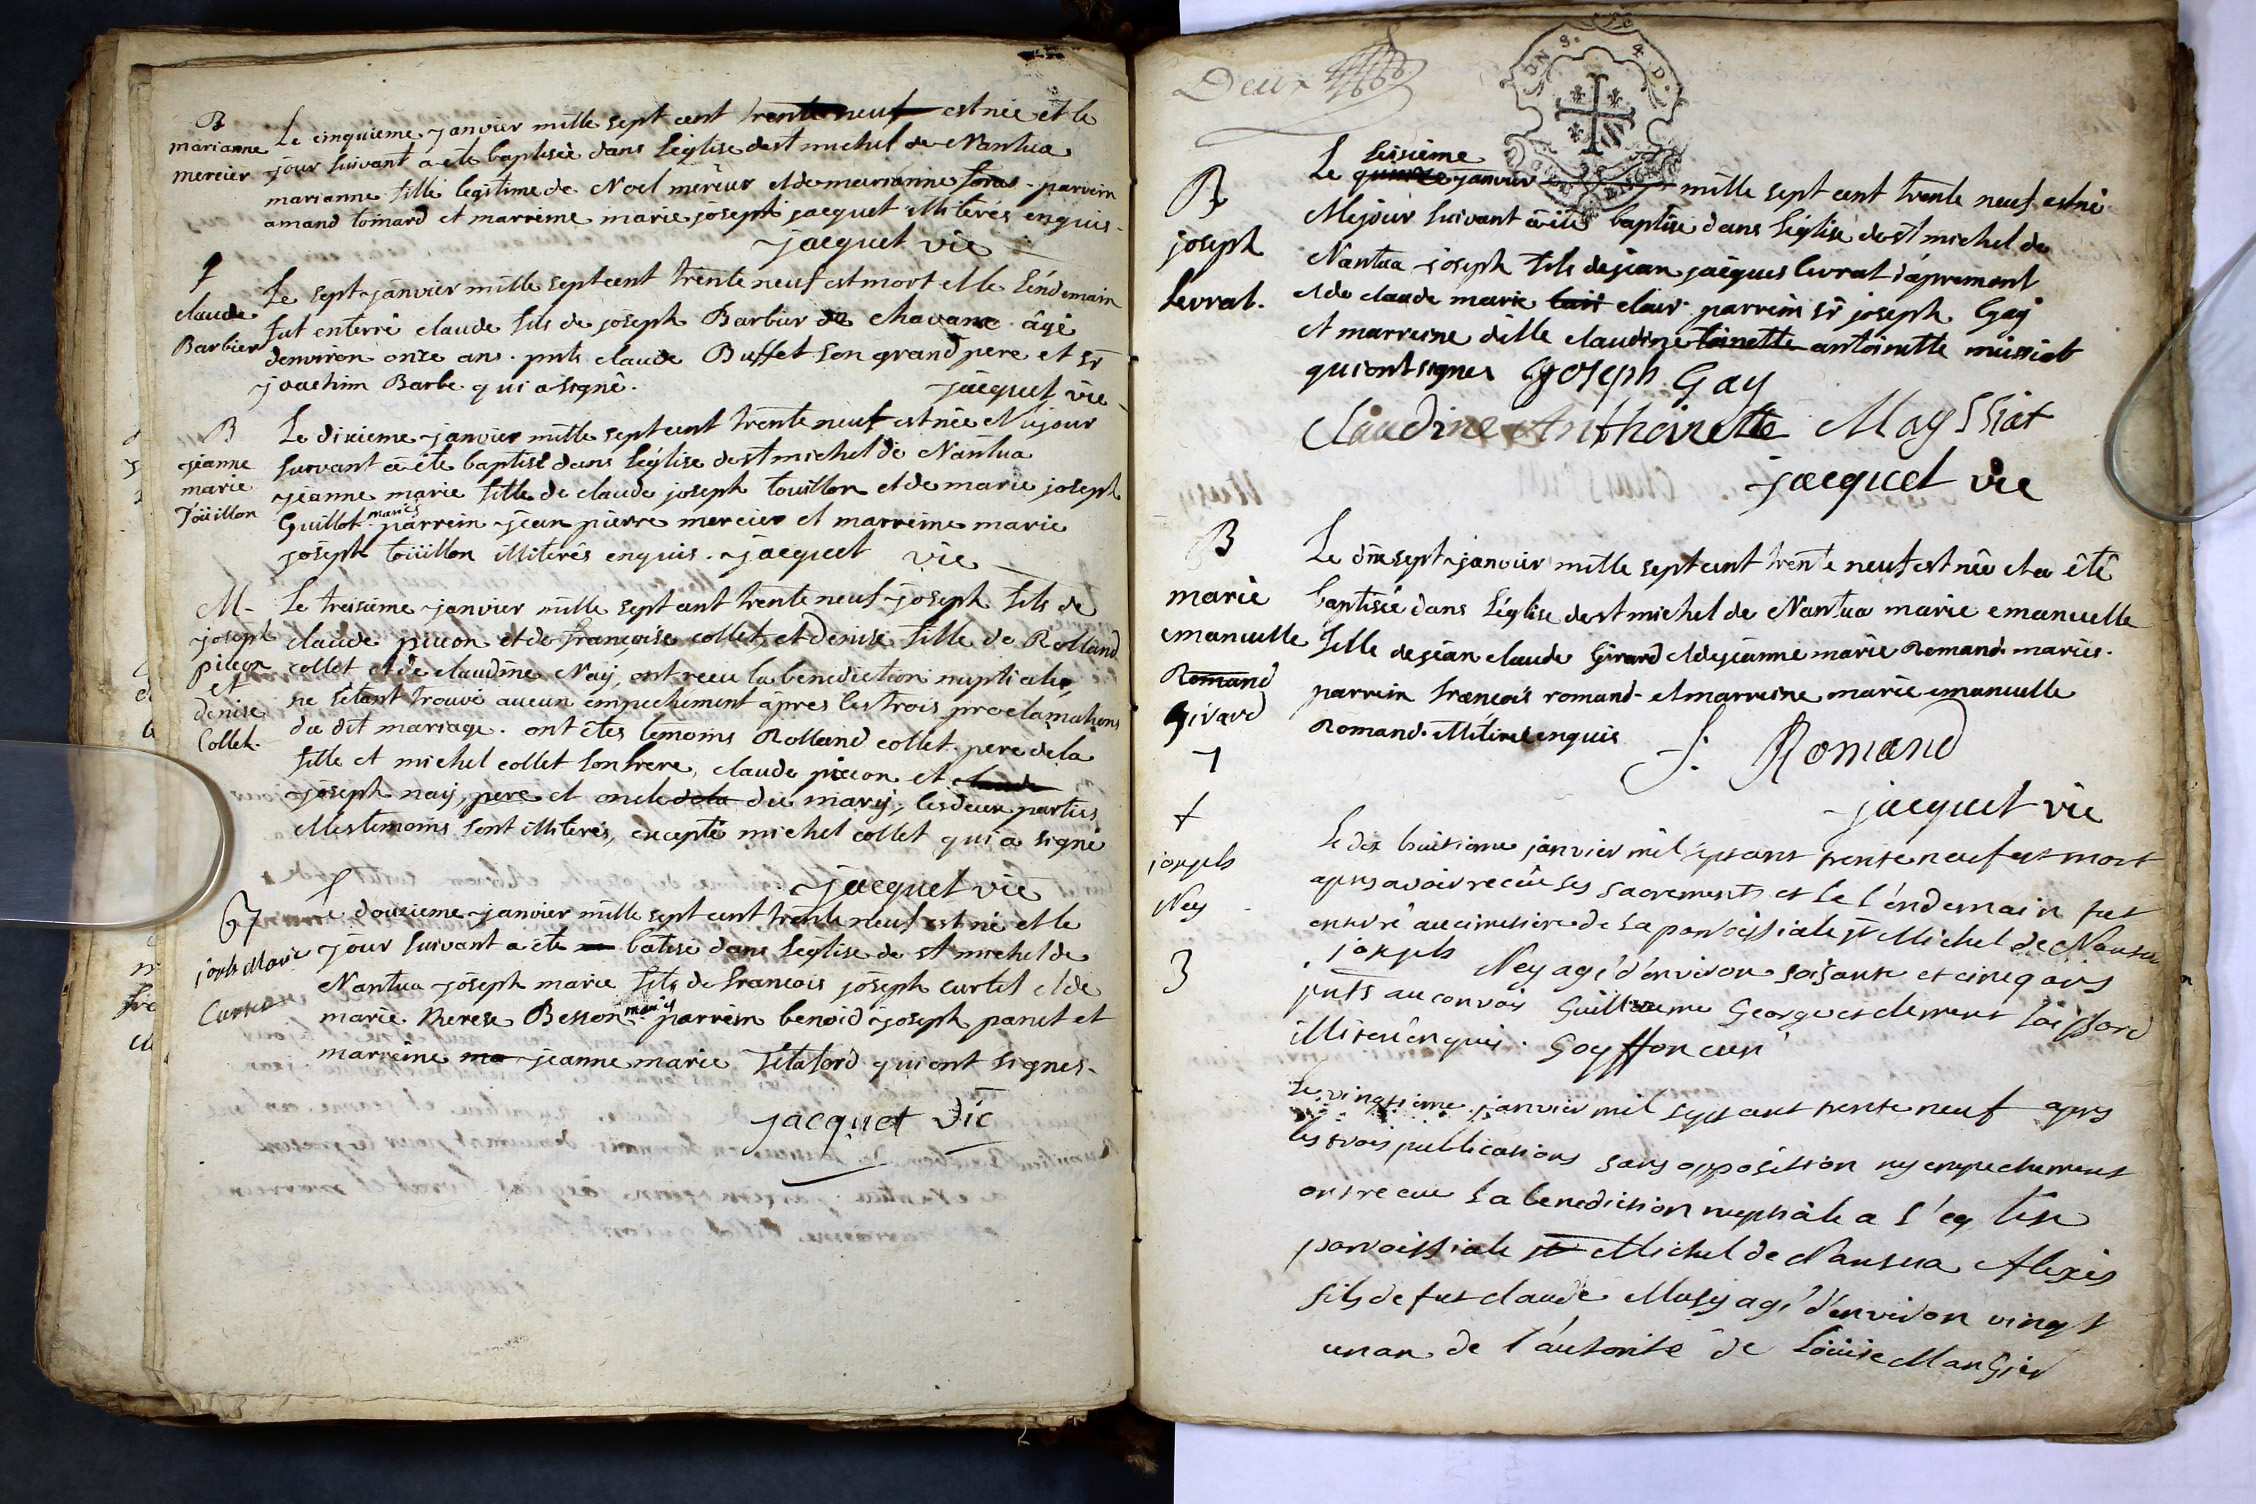 B
marianne
mercier
Le cinquieme janvier mille sept cent trente neuf est née et le
jour suivant a été baptisée dans l'église de st michel de Nantua
marianne fille legitime de Noel merciér et de marianne parrein
amand tomard et marreine marie joseph jacquet illiterés enquis.
jacquet vic
†
claude
Barbier
Le sept janvier mille sept cent trente neuf est mort et le léndemain
fut enterré claude fils de joseph Barbier de chavanne âgé
denviron onze ans. pnts claude Buffet son grand pere et sr
joachim Barbe qui a signé.
jacquet vic
B
jeanne
marie
Toüillon
Le dixieme janvier mille sept cent trente neuf est née et le jour
suivant a été baptisé dans léglise de st michel de Nantua
jeanne marie fille de claude joseph touillon et de marie joseph
Guillot mariés parrein jean pierre mercier et marreine marie
joseph toüillon illiterés enquis. jacquet vic
M.
joseph
picon
et
denise
Collet.
Le treisieme janvier mille sept cent trente neuf joseph fils de
claude picon et de françoise collet et denise fille de Rolland
collet et de claudine Nay, ont recu la benediction nuptiale,
ne s'etant trouvé aucun empechement âpres les trois proclamations
du dit mariage. ont êtes temoins Rolland collet pere de la
fille et michel collet son frere, claude picon et claude
joseph nay, pere et oncle de la du mary, les deux parties
et les temoins sont illiterés, excepté michel collet qui a signé
jacquet vic
B
josh Marie
Curtet
Le douzieme janvier mille sept cent trente neuf est né et le
jour suivant a été batisé dans léglise de st michel de
Nantua joseph marie fils de francois joseph curtet et de
marie therese Besson mariés parrein benoid joseph panet et
marreine ma jeanne marie sitaford qui ont signes.
jacquet vic
Deux
B
joseph
Levrat.
Le quinze seisieme janvier mille sept cent trente neuf est né
et le jour suivant a été baptisé dans léglise de st michel de
Nantua joseph fils de jean jacques livrat d'apremont
et de claude marie clair parrein sr joseph Gay
et marreine dlle claudine toinette antoinette missiat
qui ont signes joseph Gay
Claudine Anthoinette Mayssiat
jacquet vic
B
marie
emanuelle
Romand
Girard
Le dixsept janvier mille sept cent trente neuf est née et a été
baptisée dans léglise de st michel de Nantua marie emanuelle
fille de jean claude Girard et de jeanne marie Romand mariés.
parrein francois romand et marreine marie emanuelle
Romand illitérée enquis
f. Romand
jacquet vic
†
joseph
Ney
3
Le dix huitieme janvier mil sept cent trente neuf est mort
apres avoir recüe ses sacrements et le l'éndemain fut
enterré au cimetiere de la parroissiale st Michel de Nantua
joseph Ney agé d'environ soisante et cinq ans
pnts au convoy Guillaume George et clement
illiteré enquis. Goyffon curé
Le vingtieme janvier mil sept cent trente neuf apres
les trois publications sans opposition ny empechement
ont recue la benediction nuptiale a l'eglise
parroissiale st Michel de Nantua Alexis
fils de fut claude Musy agé d'environ vingt
un an de l'autorité de Loüise Mangier